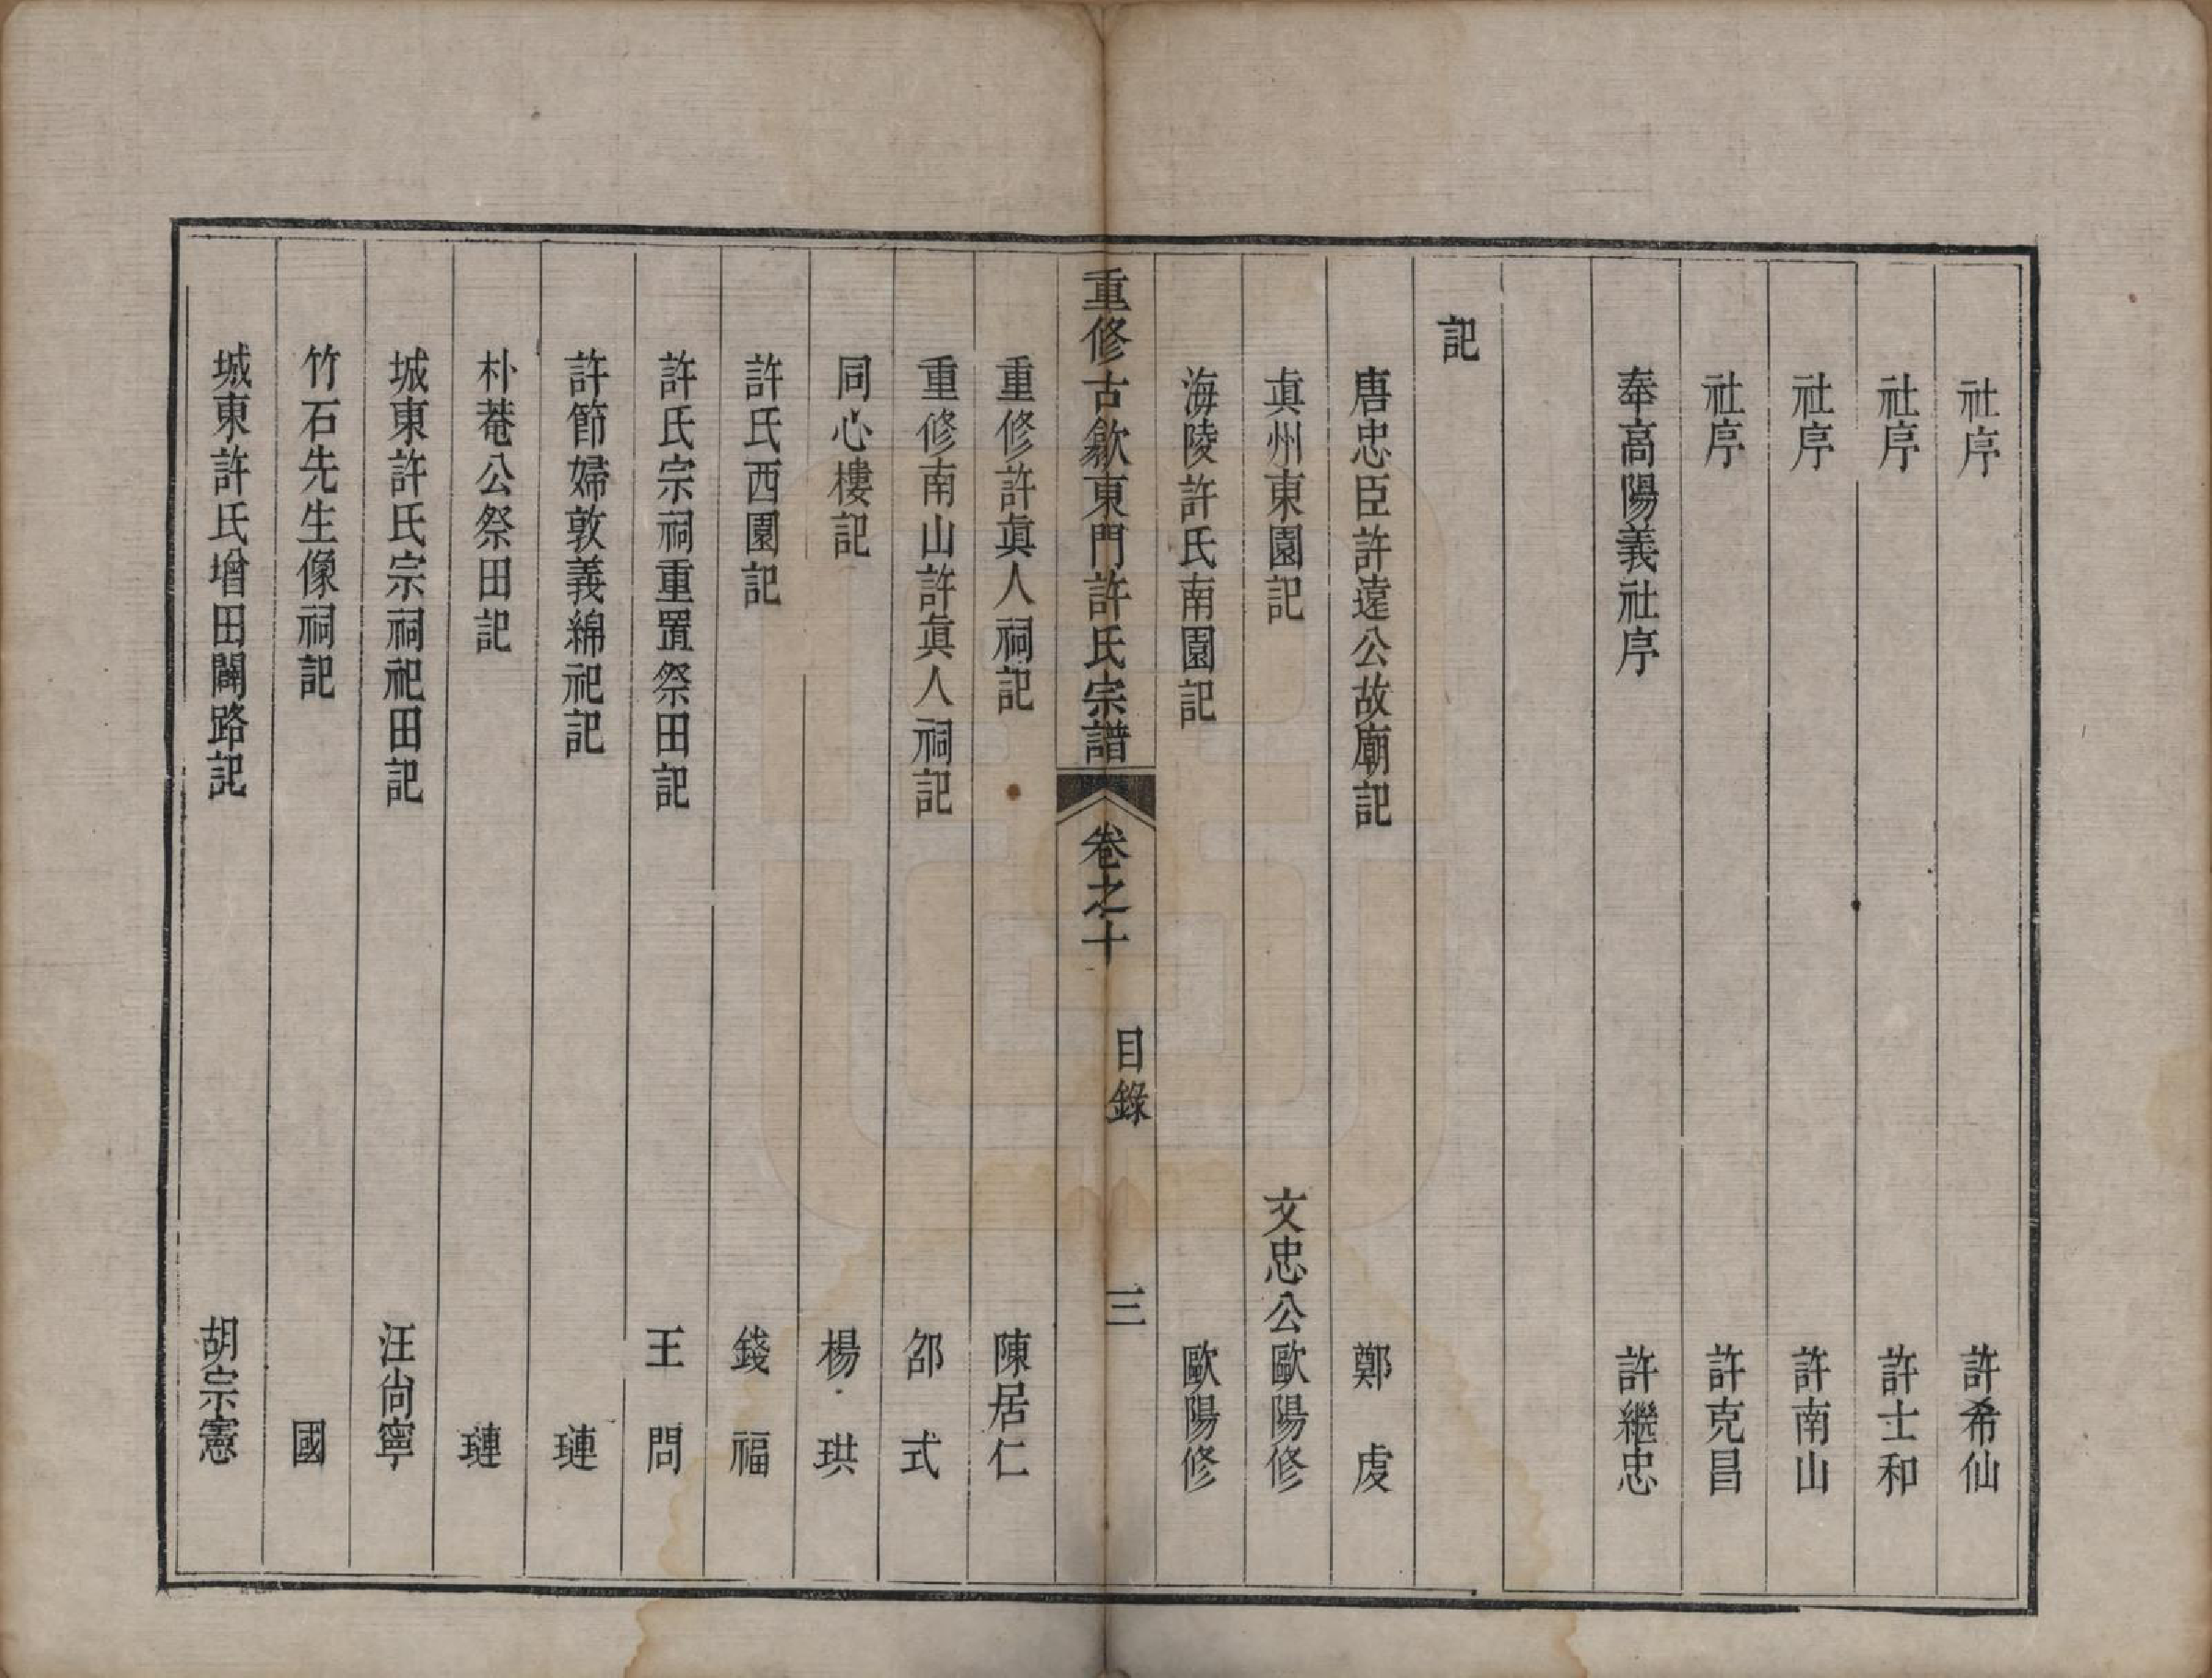 社序　許希仙
社序　許士和
社序　許南山
社序　許克昌
奉高陽義社序　許繼忠
記
唐忠臣許遠公故廟記　鄭虔
真州東園記　文忠公歐陽修
海陵許氏南園記　歐陽修
重修古歙東門許氏宗譜　卷之十　目錄　三
重修許眞人祠記　陳居仁
重修南山許眞人祠記　邵式
同心樓記　楊珙
許氏西園記　錢福
許氏宗祠重置祭田記　王問
許節婦敦義綿祀記　璉
朴菴公祭田記　璉
城東許氏宗祠祀田記　汪尙寧
竹石先生像祠記　國
城東許氏增田闢路記　胡宗憲